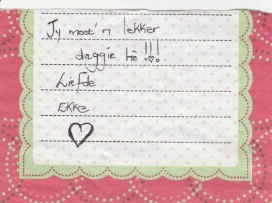 Jy moet 'n lekker
daggie hê!!!
Liefde
Ekke